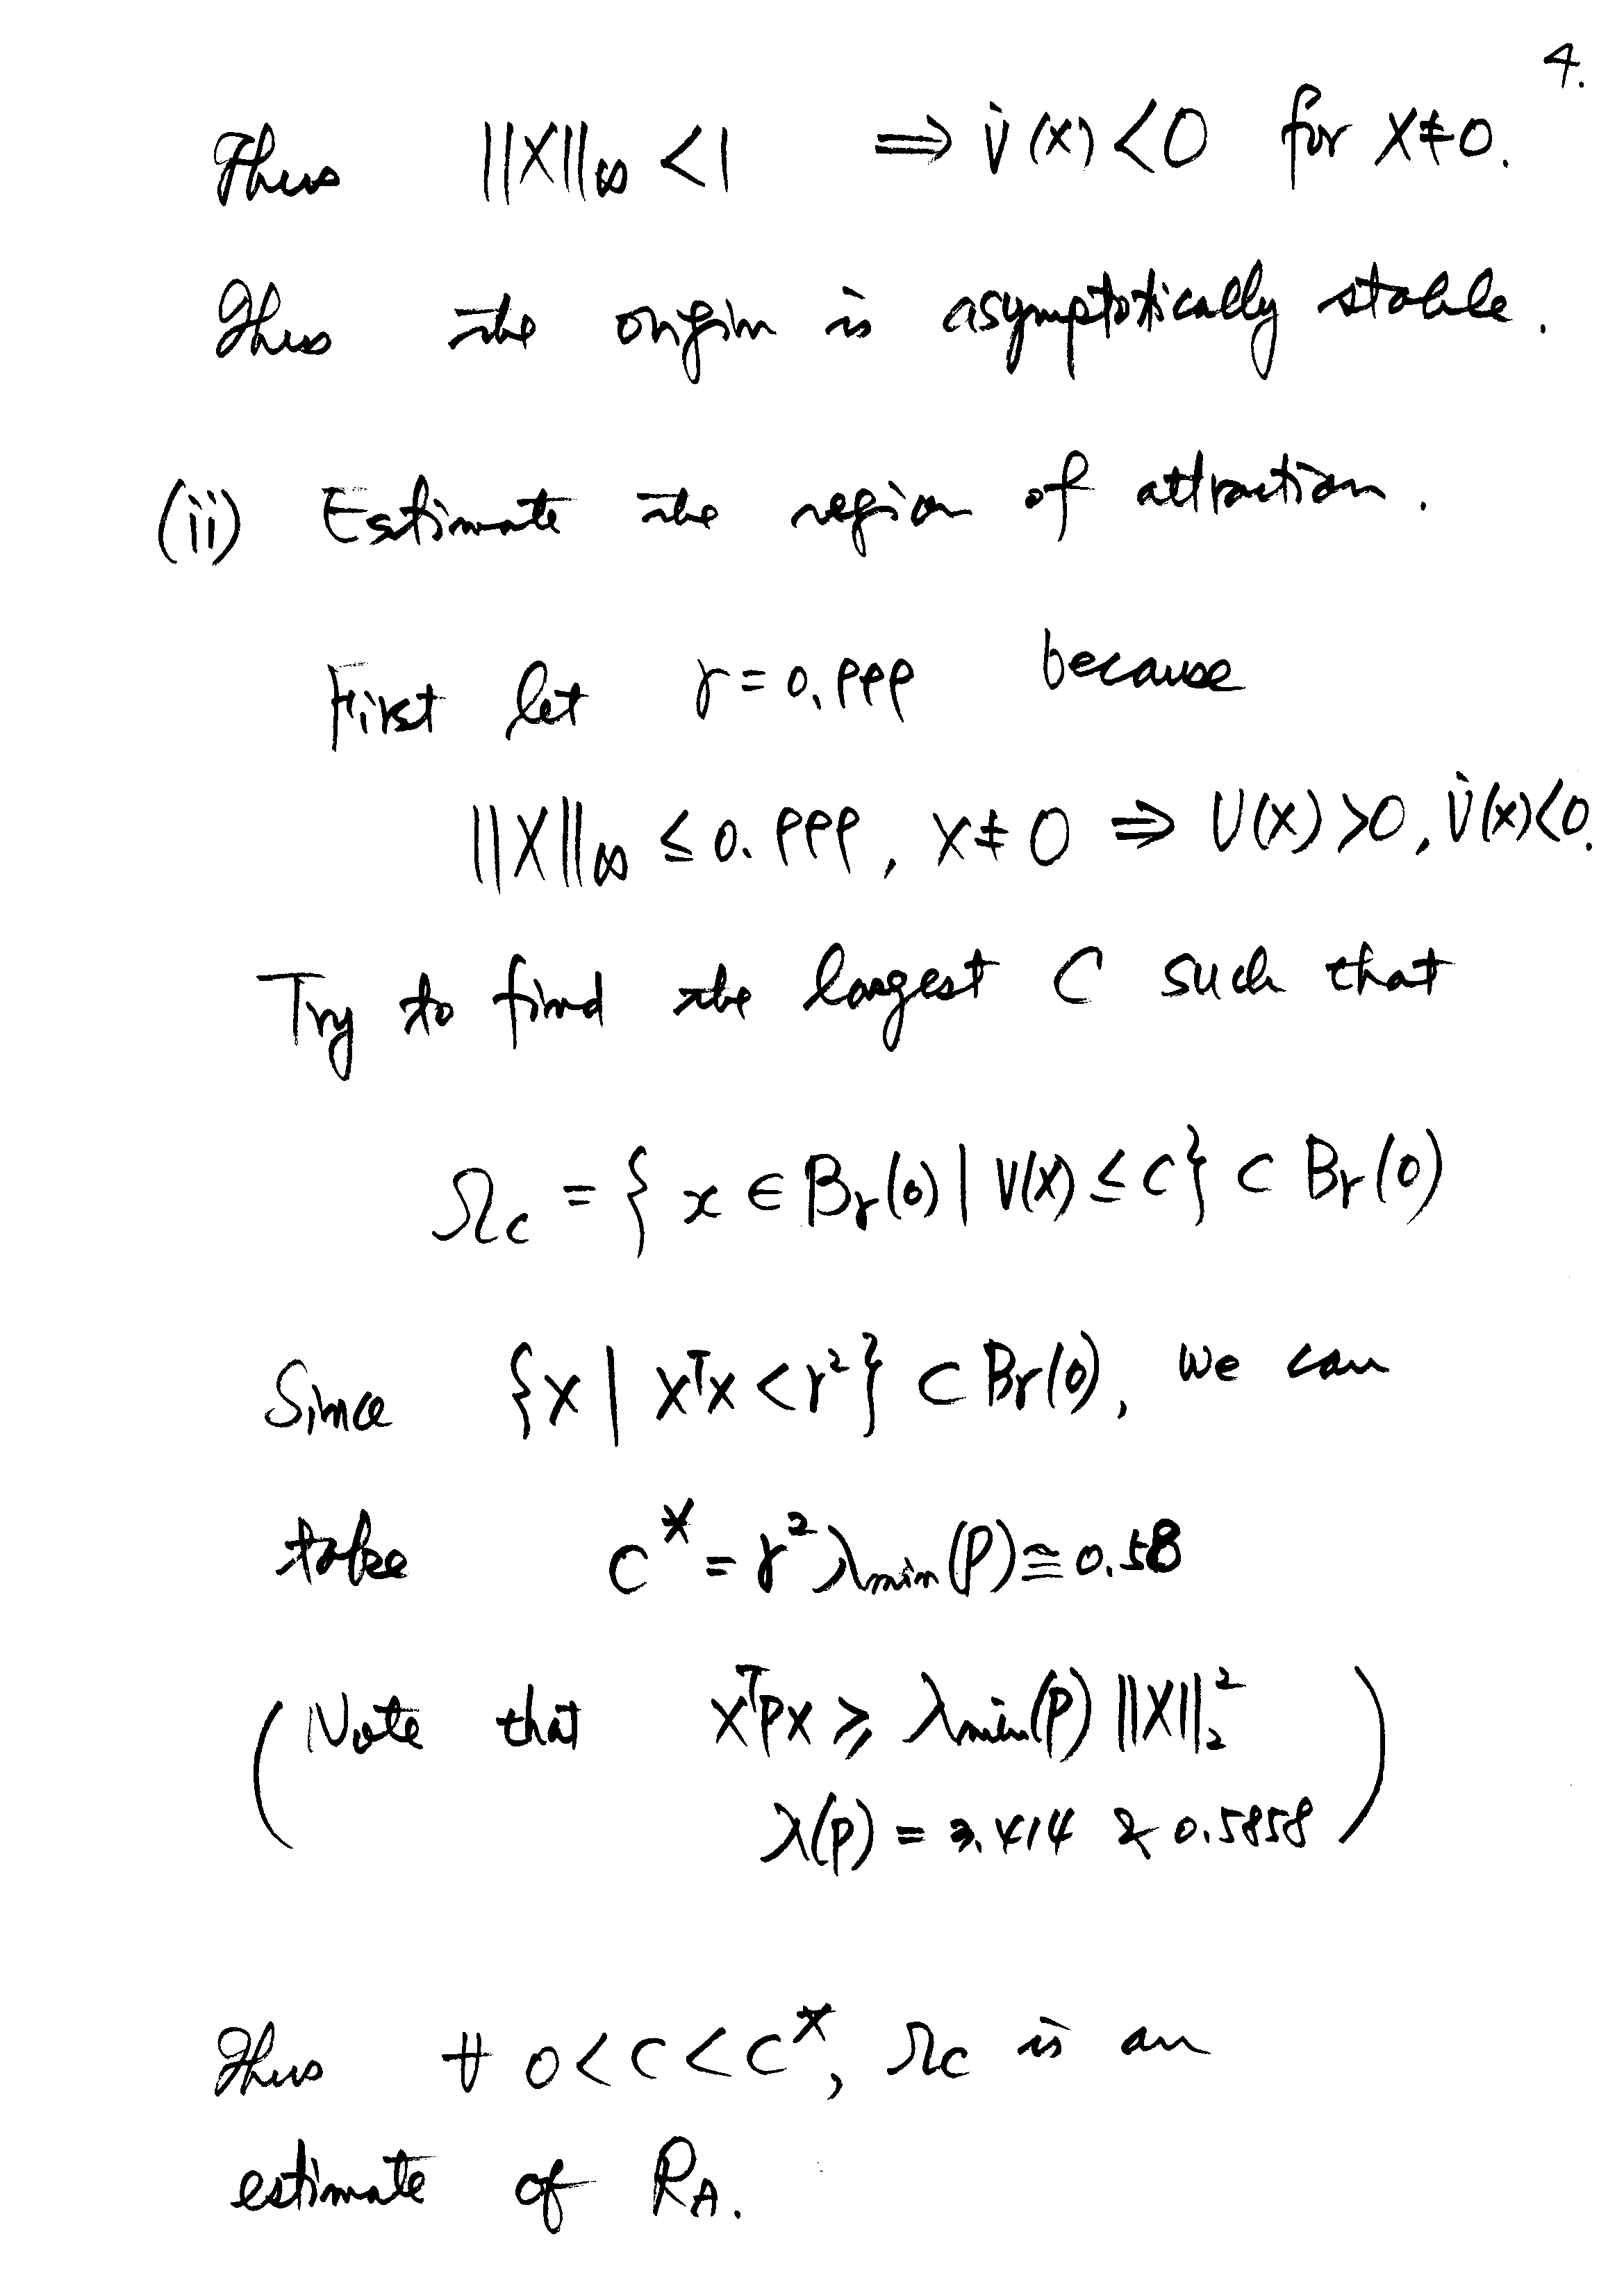 4.
Thus ||X||∞ <1 ⇒ V̇(x) <0 for X≠0.
Thus the origin is asymptotically stable.
(ii) Estimate the region of attraction.
First let r=0.999 because
||X||∞ ≤ 0.999, X≠0 ⇒ V(x) >0, V̇(x)<0.
Try to find the largest C such that
Ωc = { x ∈ Br(0) | V(x) ≤ C} ⊂ Br(0)
Since {x | xᵀx < r²} ⊂ Br(0), we can
take C* = r² λmin(P) ≅ 0.58
(Note that xᵀPx ≥ λmin(P) ||X||₂²
λ(P) = 3.414 & 0.5858)
Thus ∀ 0<C<C*, Ωc is an
estimate of RA.